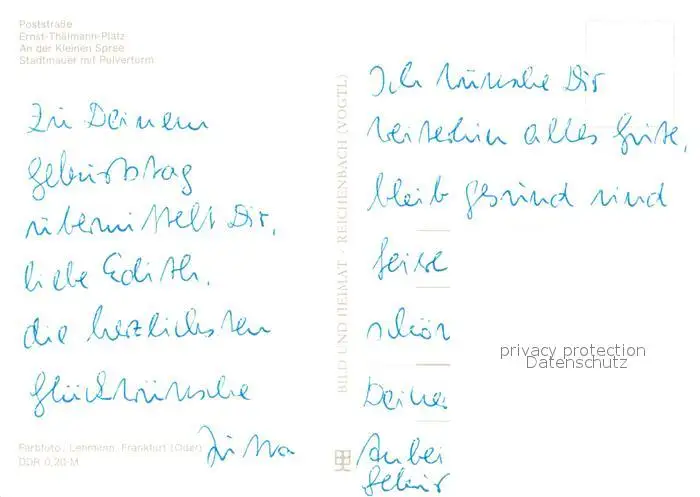 Poststraße
Ernst-Thälmann-Platz
An der Kleinen Spree
Stadtmauer mit Pulverturm
Zu Deinem
Geburtstag
übermittelt Dir,
liebe Edith,
die herzlichsten
Glückwünsche
Jutta
Farbfoto: Lehmann, Frankfurt (Oder)
DDR 0,20 M
BILD UND HEIMAT · REICHENBACH (VOGTL)
Ich wünsche Dir
weiterhin alles Gute,
bleib gesund und
feire
schön
Deine
Anbei
Gebur
privacy protection
Datenschutz